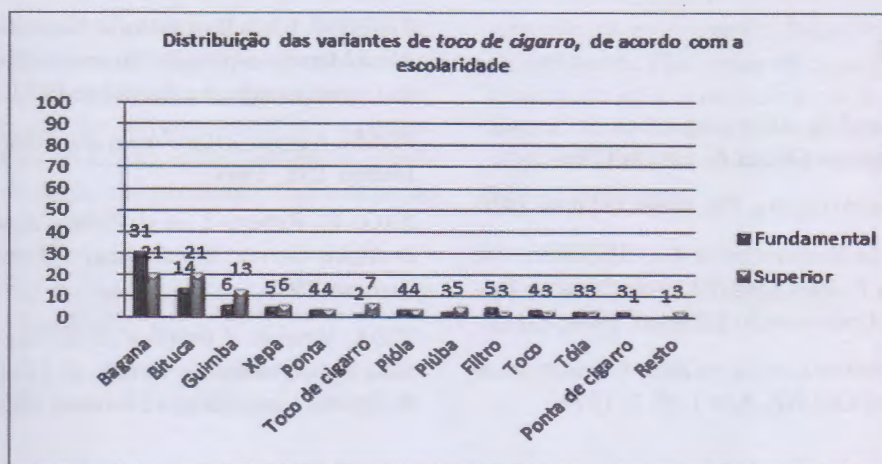 Distribuição das variantes de toco de cigarro, de acordo com a
escolaridade
100
90
80
70
60
50
40
30
20
10
0
31 21
14 21
6 13
5 6
4 4
2 7
4 4
3 5
5 3
4 3
3 3
3 1
1 3
Bagana
Bituca
Guimba
Xepa
Ponta
Toco de cigarro
Pióla
Piúba
Filtro
Toco
Tóla
Ponta de cigarro
Resto
Fundamental
Superior